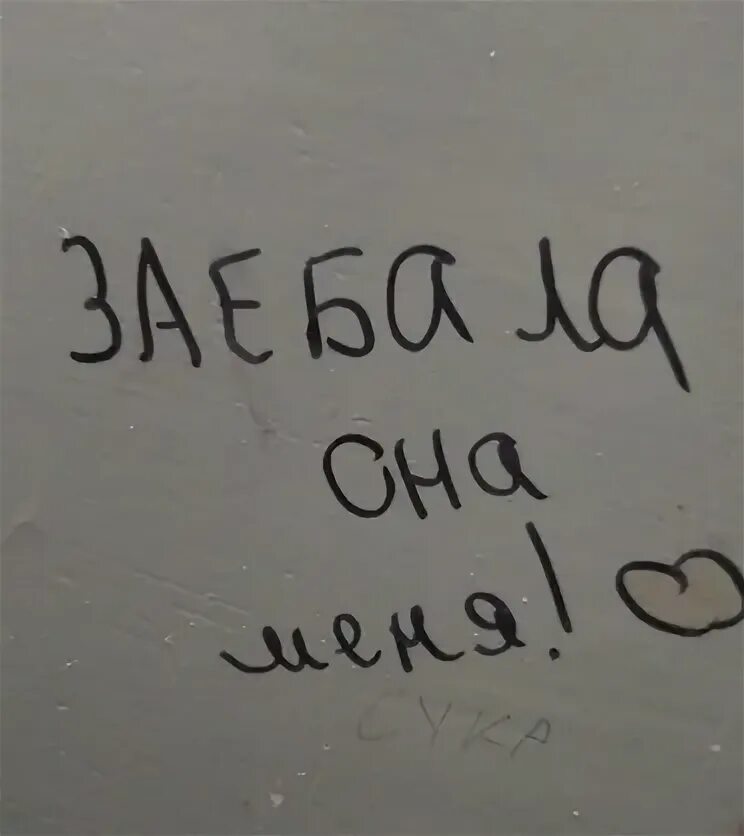 ЗАЕБАЛА
ОНА
меня!
СУКА